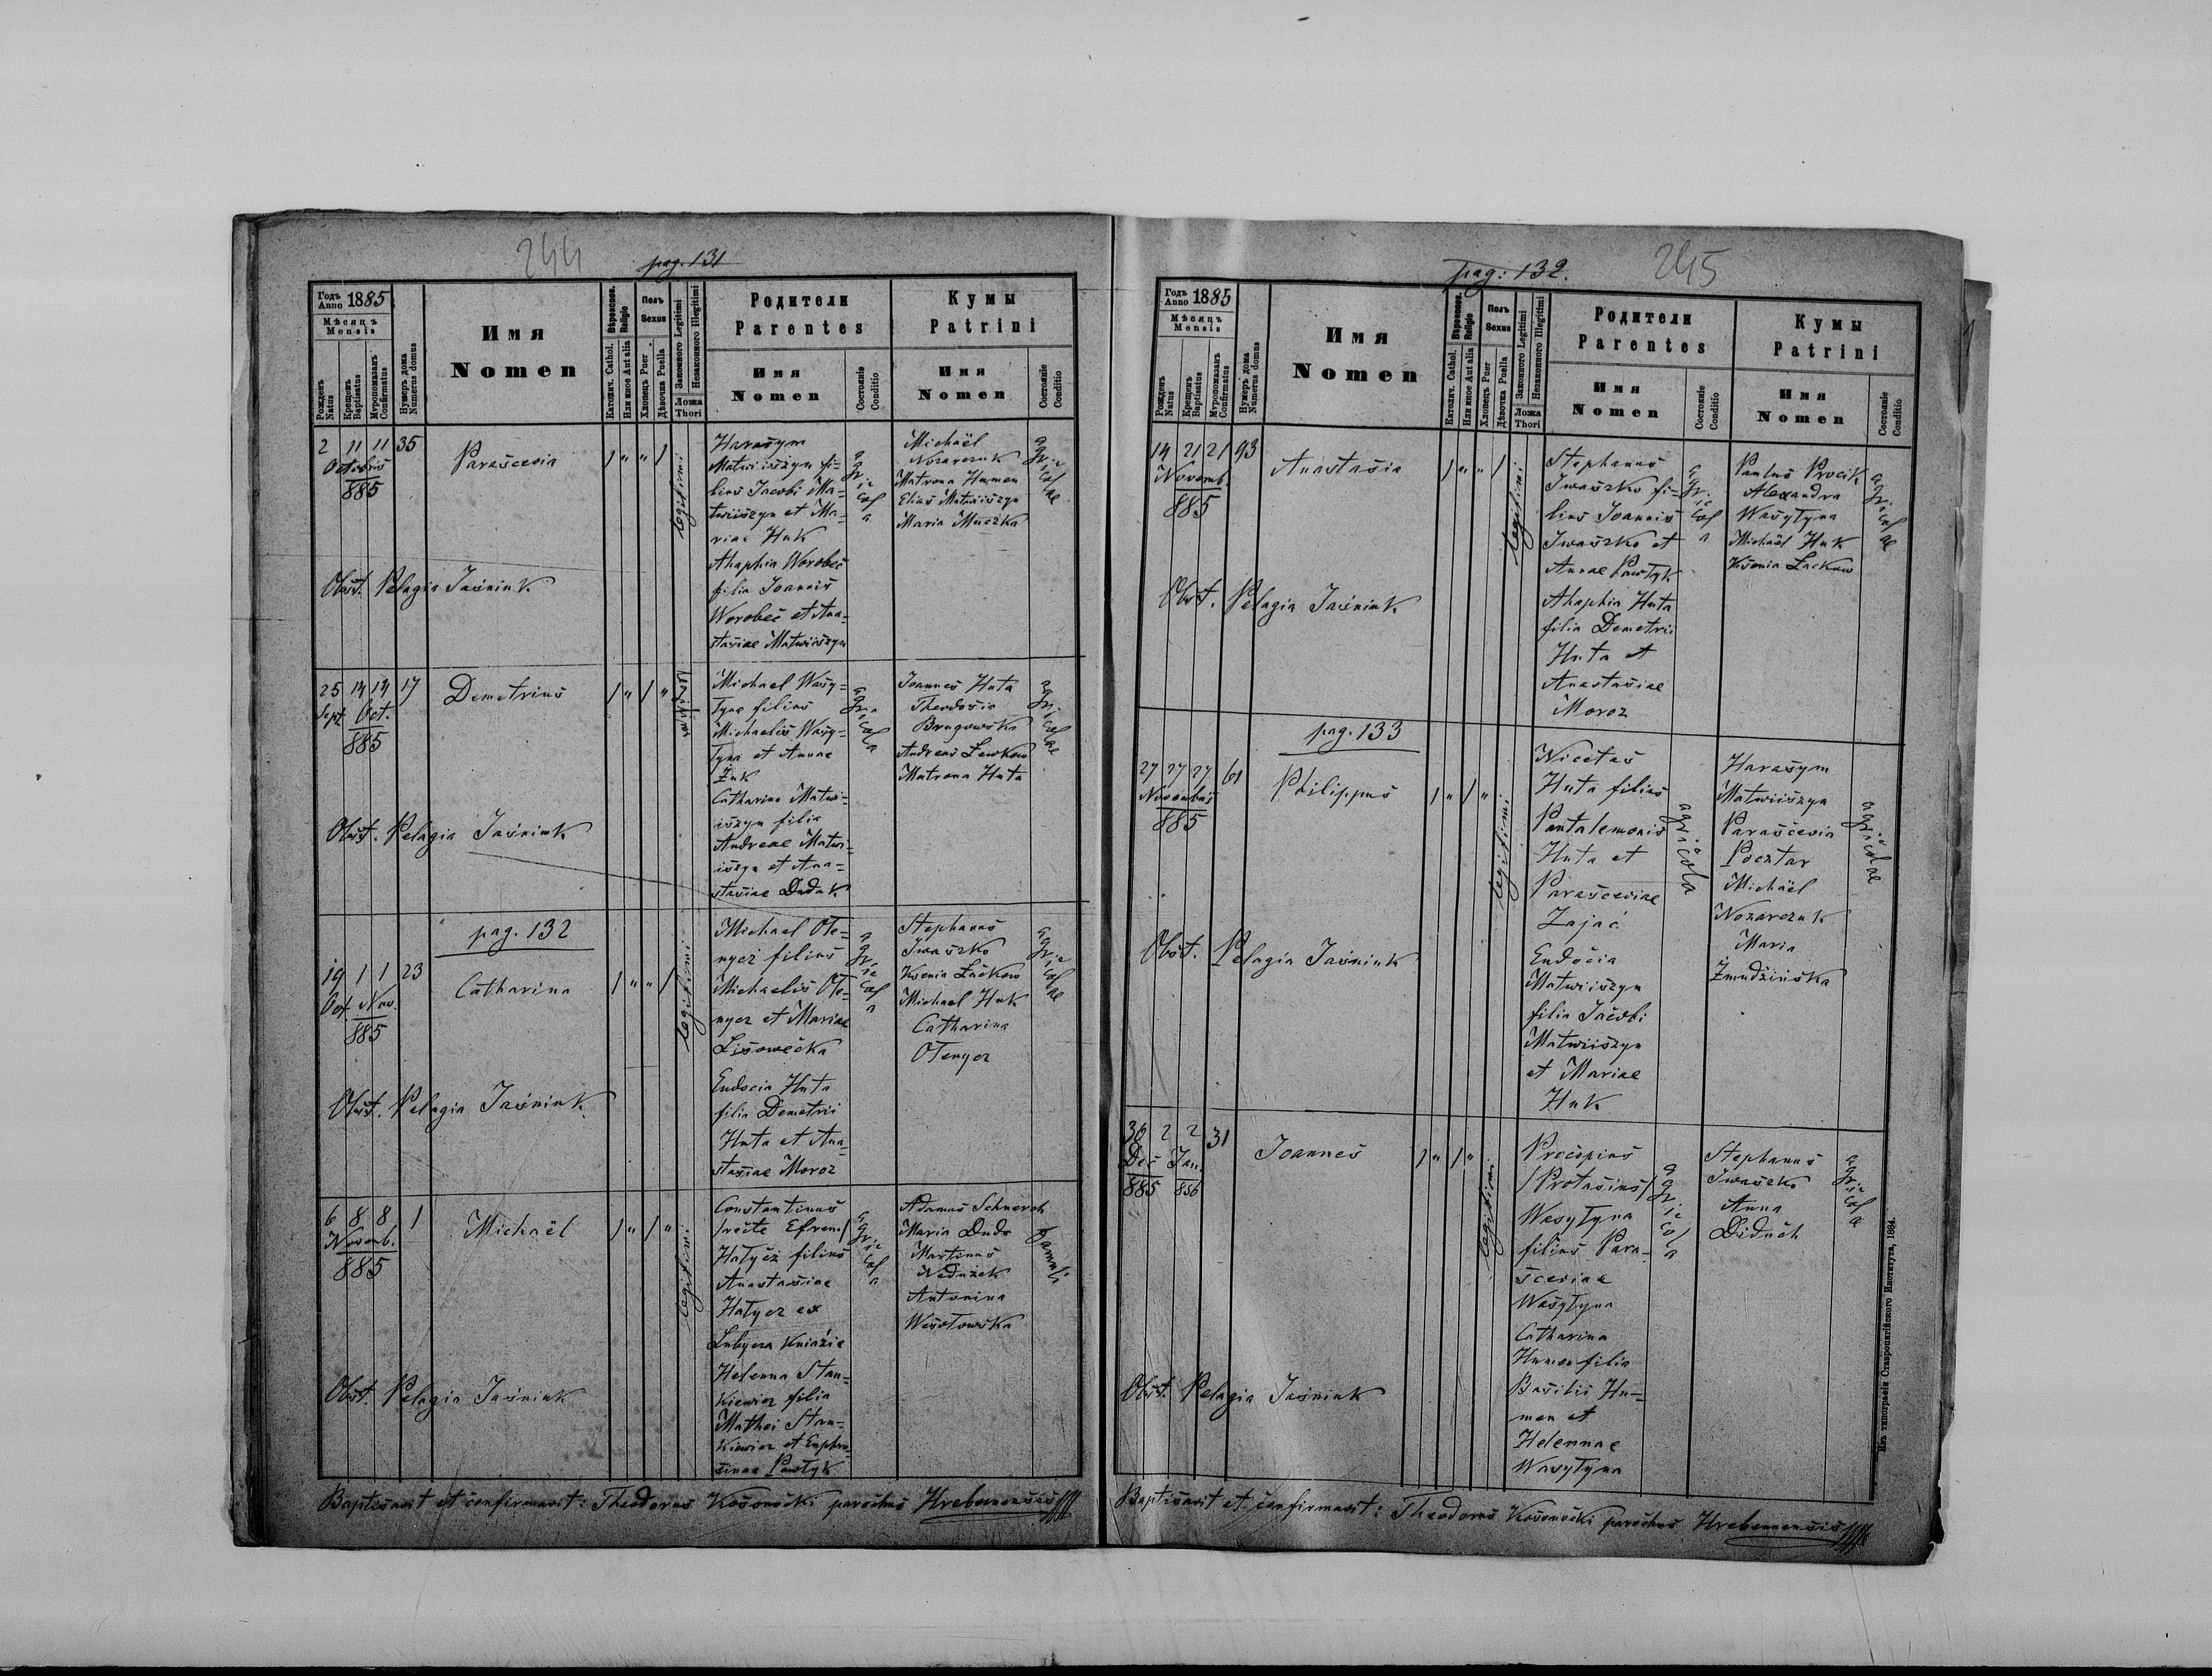 244
pag. 131
Годъ Anno 1885
Мѣсяцъ Mensis
Рожденъ Natus
Крещенъ Baptisatus
Мѵропомазанъ Confirmatus
Нумеръ дома Numerus domus
Имя
Nomen
Вѣроиспов. Religio
Католич. Cathol.
Или иное Aut alia
Полъ Sexus
Хлопецъ Puer
Дѣвочка Puella
Законного Legitimi
Незаконного Illegitimi
Ложа Thori
Родители
Parentes
Имя
Nomen
Состояніе Conditio
Кумы
Patrini
Имя
Nomen
Состояніе Conditio
2 11 11 35
Octobris
885
Parascevia
legitimi
Harasym
Matwiiszyn fi-
lius Jacobi Ma-
twiiszyn et Ma-
riae Huk
Ahaphia Worobec
filia Joannis
Worobec et Ana-
stasiae Matwiiszyn
agricola
Michaël
Nozarczuk
Matrona Humen
Elias Matwiiszyn
Maria Muczka
agricolae
Obst. Pelagia Jaśniuk
25 14 14 17
Sept. Oct.
885
Demetrius
legitimi
Michael Wasy-
łyna filius
Michaelis Wasy-
łyna et Annae
Żuk
Catharina Matwi-
iszyn filia
Andreae Matwi-
iszyn et Ana-
stasiae Dudak
agricola
Joannes Huta
Theodosia
Brugowska
Andreas Lewkow
Matrona Huta
agricolae
Obst. Pelagia Jaśniuk
pag. 132
19 1 1 23
Oct. Nov.
885
Catharina
legitimi
Michael Ole-
nycz filius
Michaelis Ole-
nycz et Mariae
Lisowecka
Eudocia Huta
filia Demetrii
Huta et Ana-
stasiae Moroz
agricola
Stephanus
Iwaszko
Ksenia Łackow
Michael Huk
Catharina
agricolae
Obst. Pelagia Jaśniuk
6 8 8 1
Novemb.
885
Michaël
legitimi
Constantinus
/recte Efrem/
Hałycz filius
Anastasiae
Hałycz ex
Lubycza Kniazie
Helenna Stan-
kiewicz filia
Mathei Stan-
kiewicz et Euphro-
sinae Pawłyk
agricola
Adamus Schnerch
Maria Duda
Martinus
Nedużek
Antonina
Wesołowska
famuli
Obst. Pelagia Jaśniuk
Baptisavit et confirmavit: Theodorus Kosonocki parochus Hrebennensis
245
pag: 132.
Годъ Anno 1885
Мѣсяцъ Mensis
Рожденъ Natus
Крещенъ Baptisatus
Мѵропомазанъ Confirmatus
Нумеръ дома Numerus domus
Имя
Nomen
Вѣроиспов. Religio
Католич. Cathol.
Или иное Aut alia
Полъ Sexus
Хлопецъ Puer
Дѣвочка Puella
Законного Legitimi
Незаконного Illegitimi
Ложа Thori
Родители
Parentes
Имя
Nomen
Состояніе Conditio
Кумы
Patrini
Имя
Nomen
Состояніе Conditio
14 21 21 93
Novemb.
885
Anastasia
legitimi
Stephanus
Iwaszko fi-
lius Joannis
Iwaszko et
Annae Pawłyk
Ahaphia Huta
filia Demetrii
Huta et
Anastasiae
Moroz
agricola
Paulus Procik
Alexandra
Wasyłyna
Michaël Huk
Ksenia Łackow
agricolae
Obst. Pelagia Jaśniuk
pag. 133
27 27 27 61
Novembris
885
Philippus
legitimi
Nicetas
Huta filius
Pantalemonis
Huta et
Parasceviae
Zając
Eudocia
Matwiiszyn
filia Jacobi
Matwiiszyn
et Mariae
Huk
agricola
Harasym
Matwiiszyn
Parascevia
Pocztar
Michaël
Nozarczuk
Maria
Żmudzińska
agricolae
Obst. Pelagia Jaśniuk
30 2 2 31
Dec Jan.
885 886
Joannes
legitimi
Procopius
/Protasius/
Wasyłyna
filius Para-
sceviae
Wasyłyna
Catharina
Humen filia
Basilii Hu-
men et
Helennae
Wasyłyna
agricola
Stephanus
Iwaszko
Anna
Diduch
agricola
Obst. Pelagia Jaśniuk
Baptisavit et confirmavit: Theodorus Kosonocki parochus Hrebennensis
Изъ типографіи Ставропигійского Института, 1884.